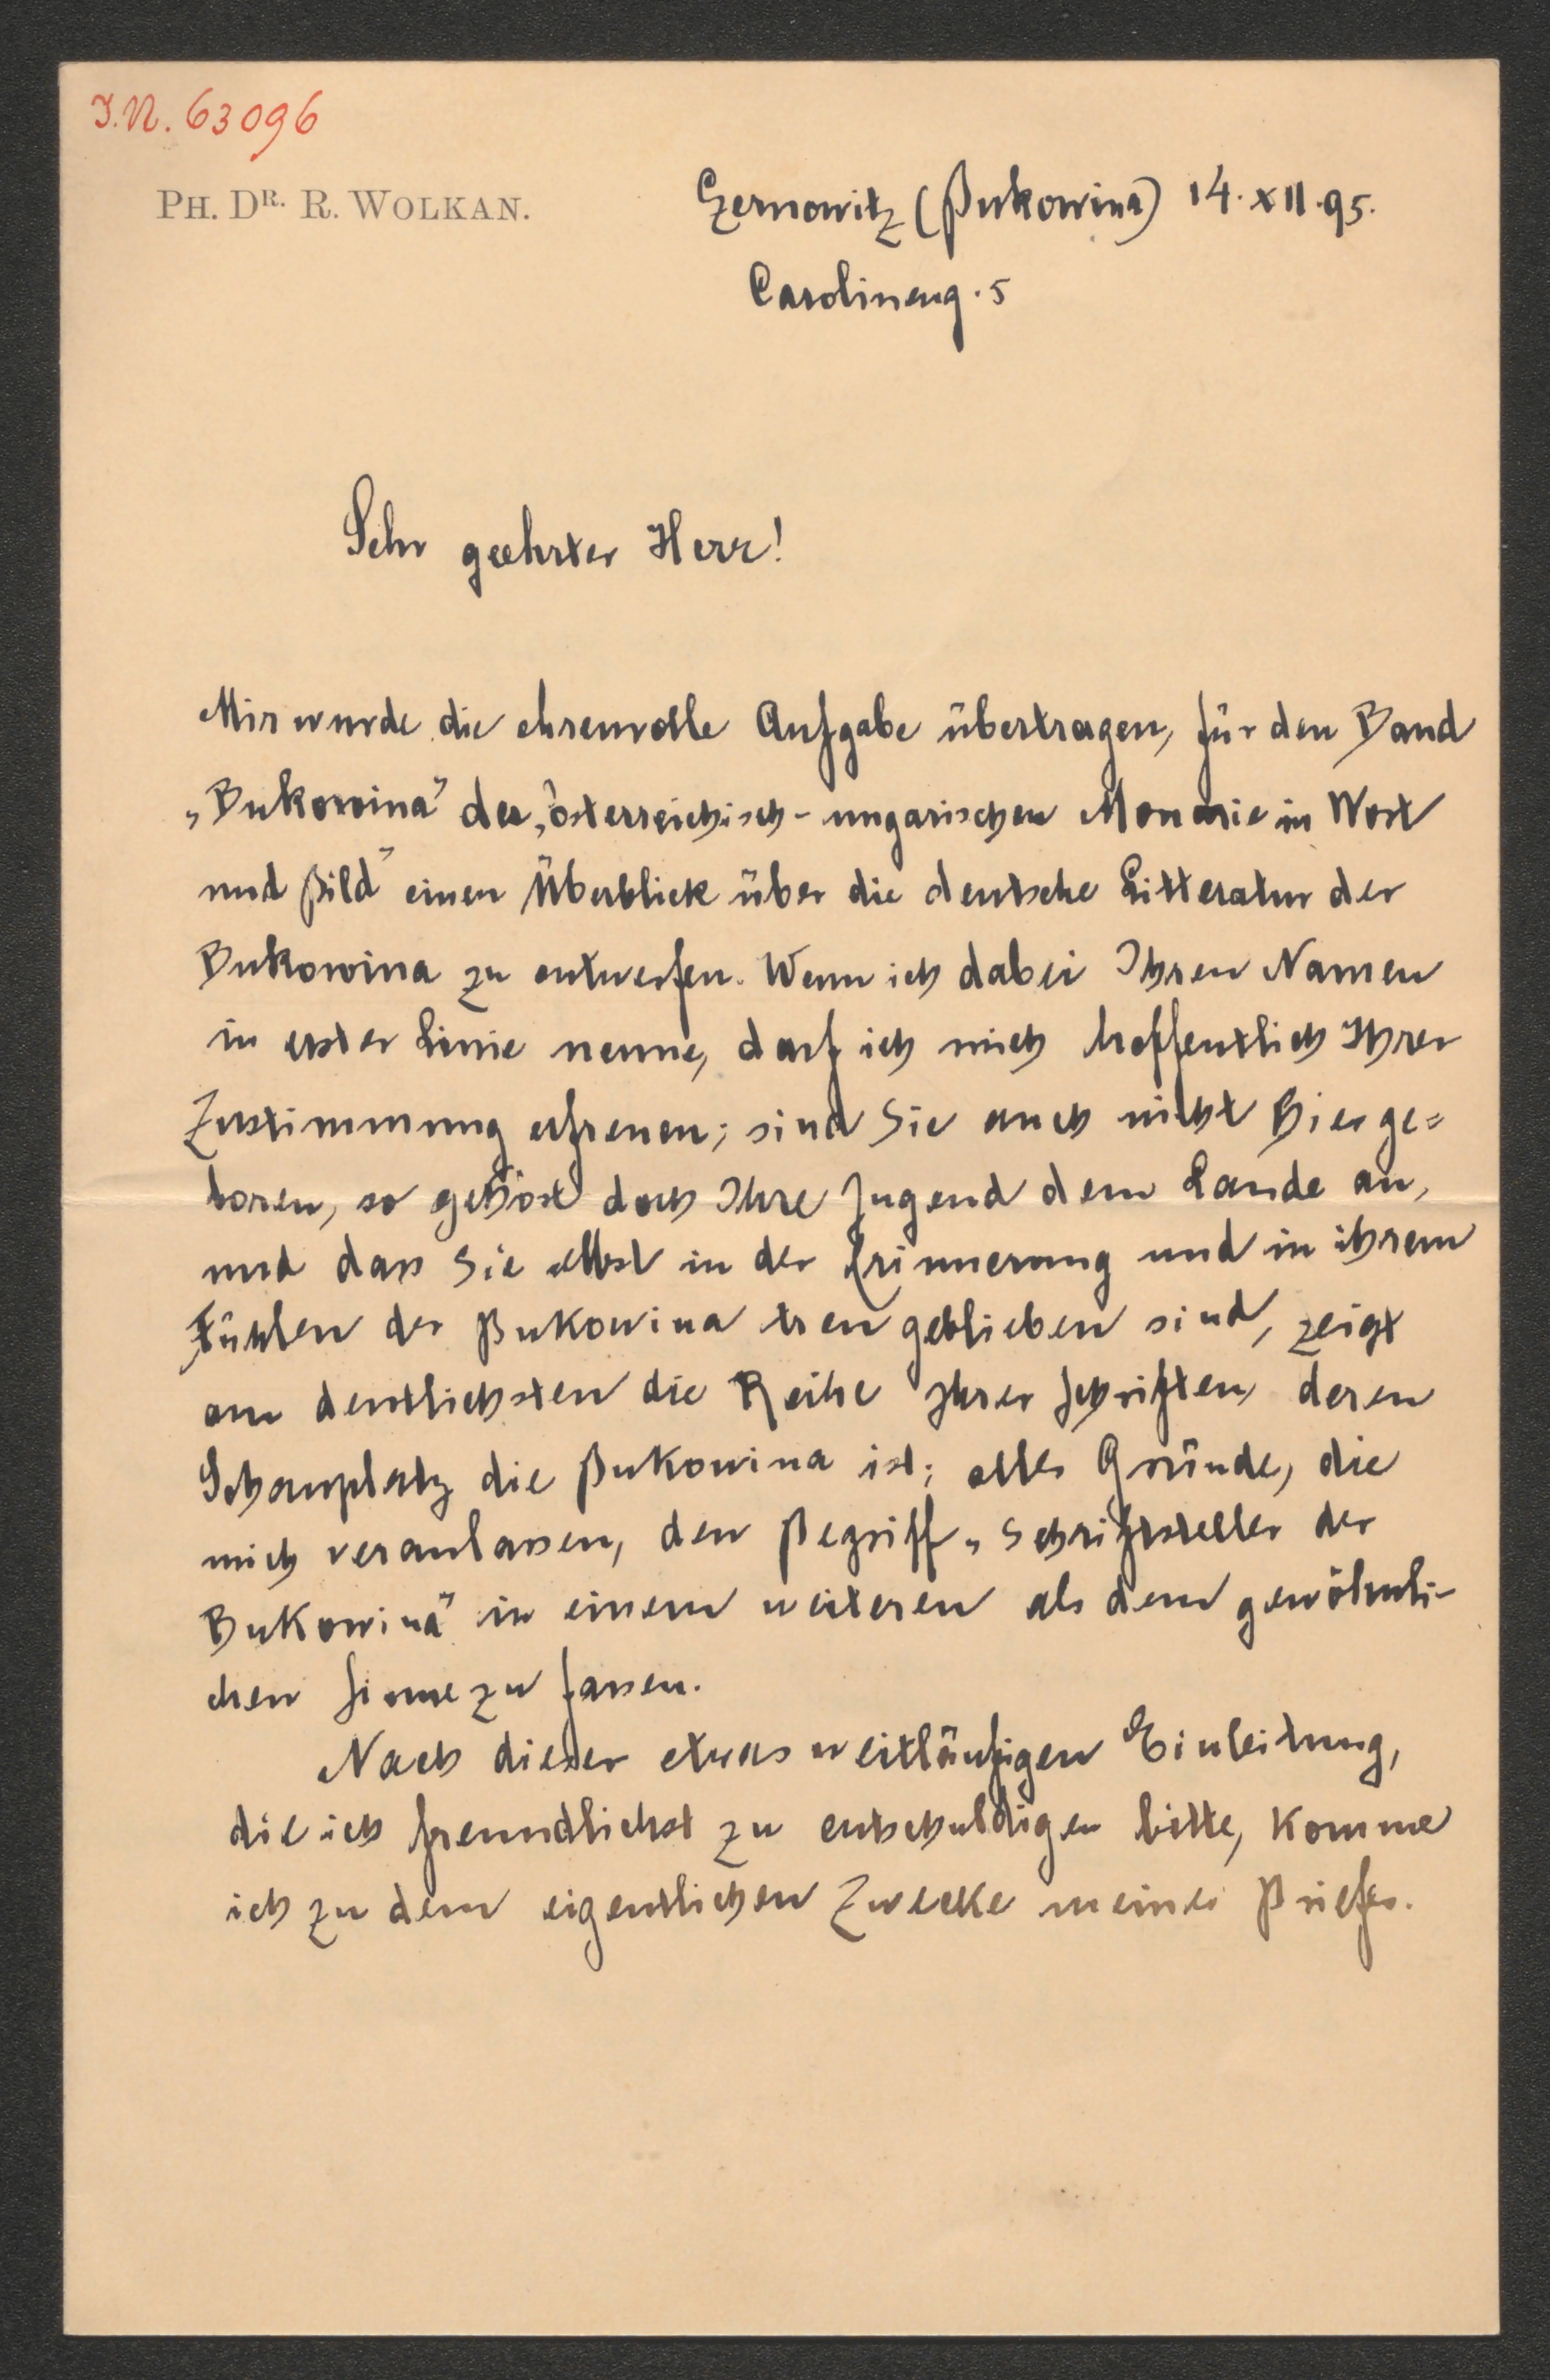 I.N. 63096
PH. DR. R. WOLKAN.
Czernowitz (Bukowina) 14. XII. 95.
Carolineng. 5
Sehr geehrter Herr!
Mir wurde die ehrenvolle Aufgabe übertragen, für den Band
„Bukowina" der „österreichisch-ungarischen Monarie in Wort
und Bild" einen Überblick über die deutsche Litteratur der
Bukowina zu entwerfen. Wenn ich dabei Ihren Namen
in erster Linie nenne, darf ich mich hoffentlich Ihrer
Zustimmung erfreuen; sind Sie auch nicht hier ge=
boren, so gehört doch Ihre Jugend dem Lande an,
und dass Sie selbst in der Erinnerung und in ihrem
Fühlen der Bukowina treu geblieben sind, zeigt
am deutlichsten die Reihe Ihrer Schriften, deren
Schauplatz die Bukowina ist; alles Gründe, die
mich veranlassen, den Begriff „Schriftsteller der
Bukowina" in einem weiteren als dem gewöhnli-
chen Sinne zu fassen.
Nach dieser etwas weitläufigen Einleitung,
die ich freundlichst zu entschuldigen bitte, komme
ich zu dem eigentlichen Zwecke meines Briefes.